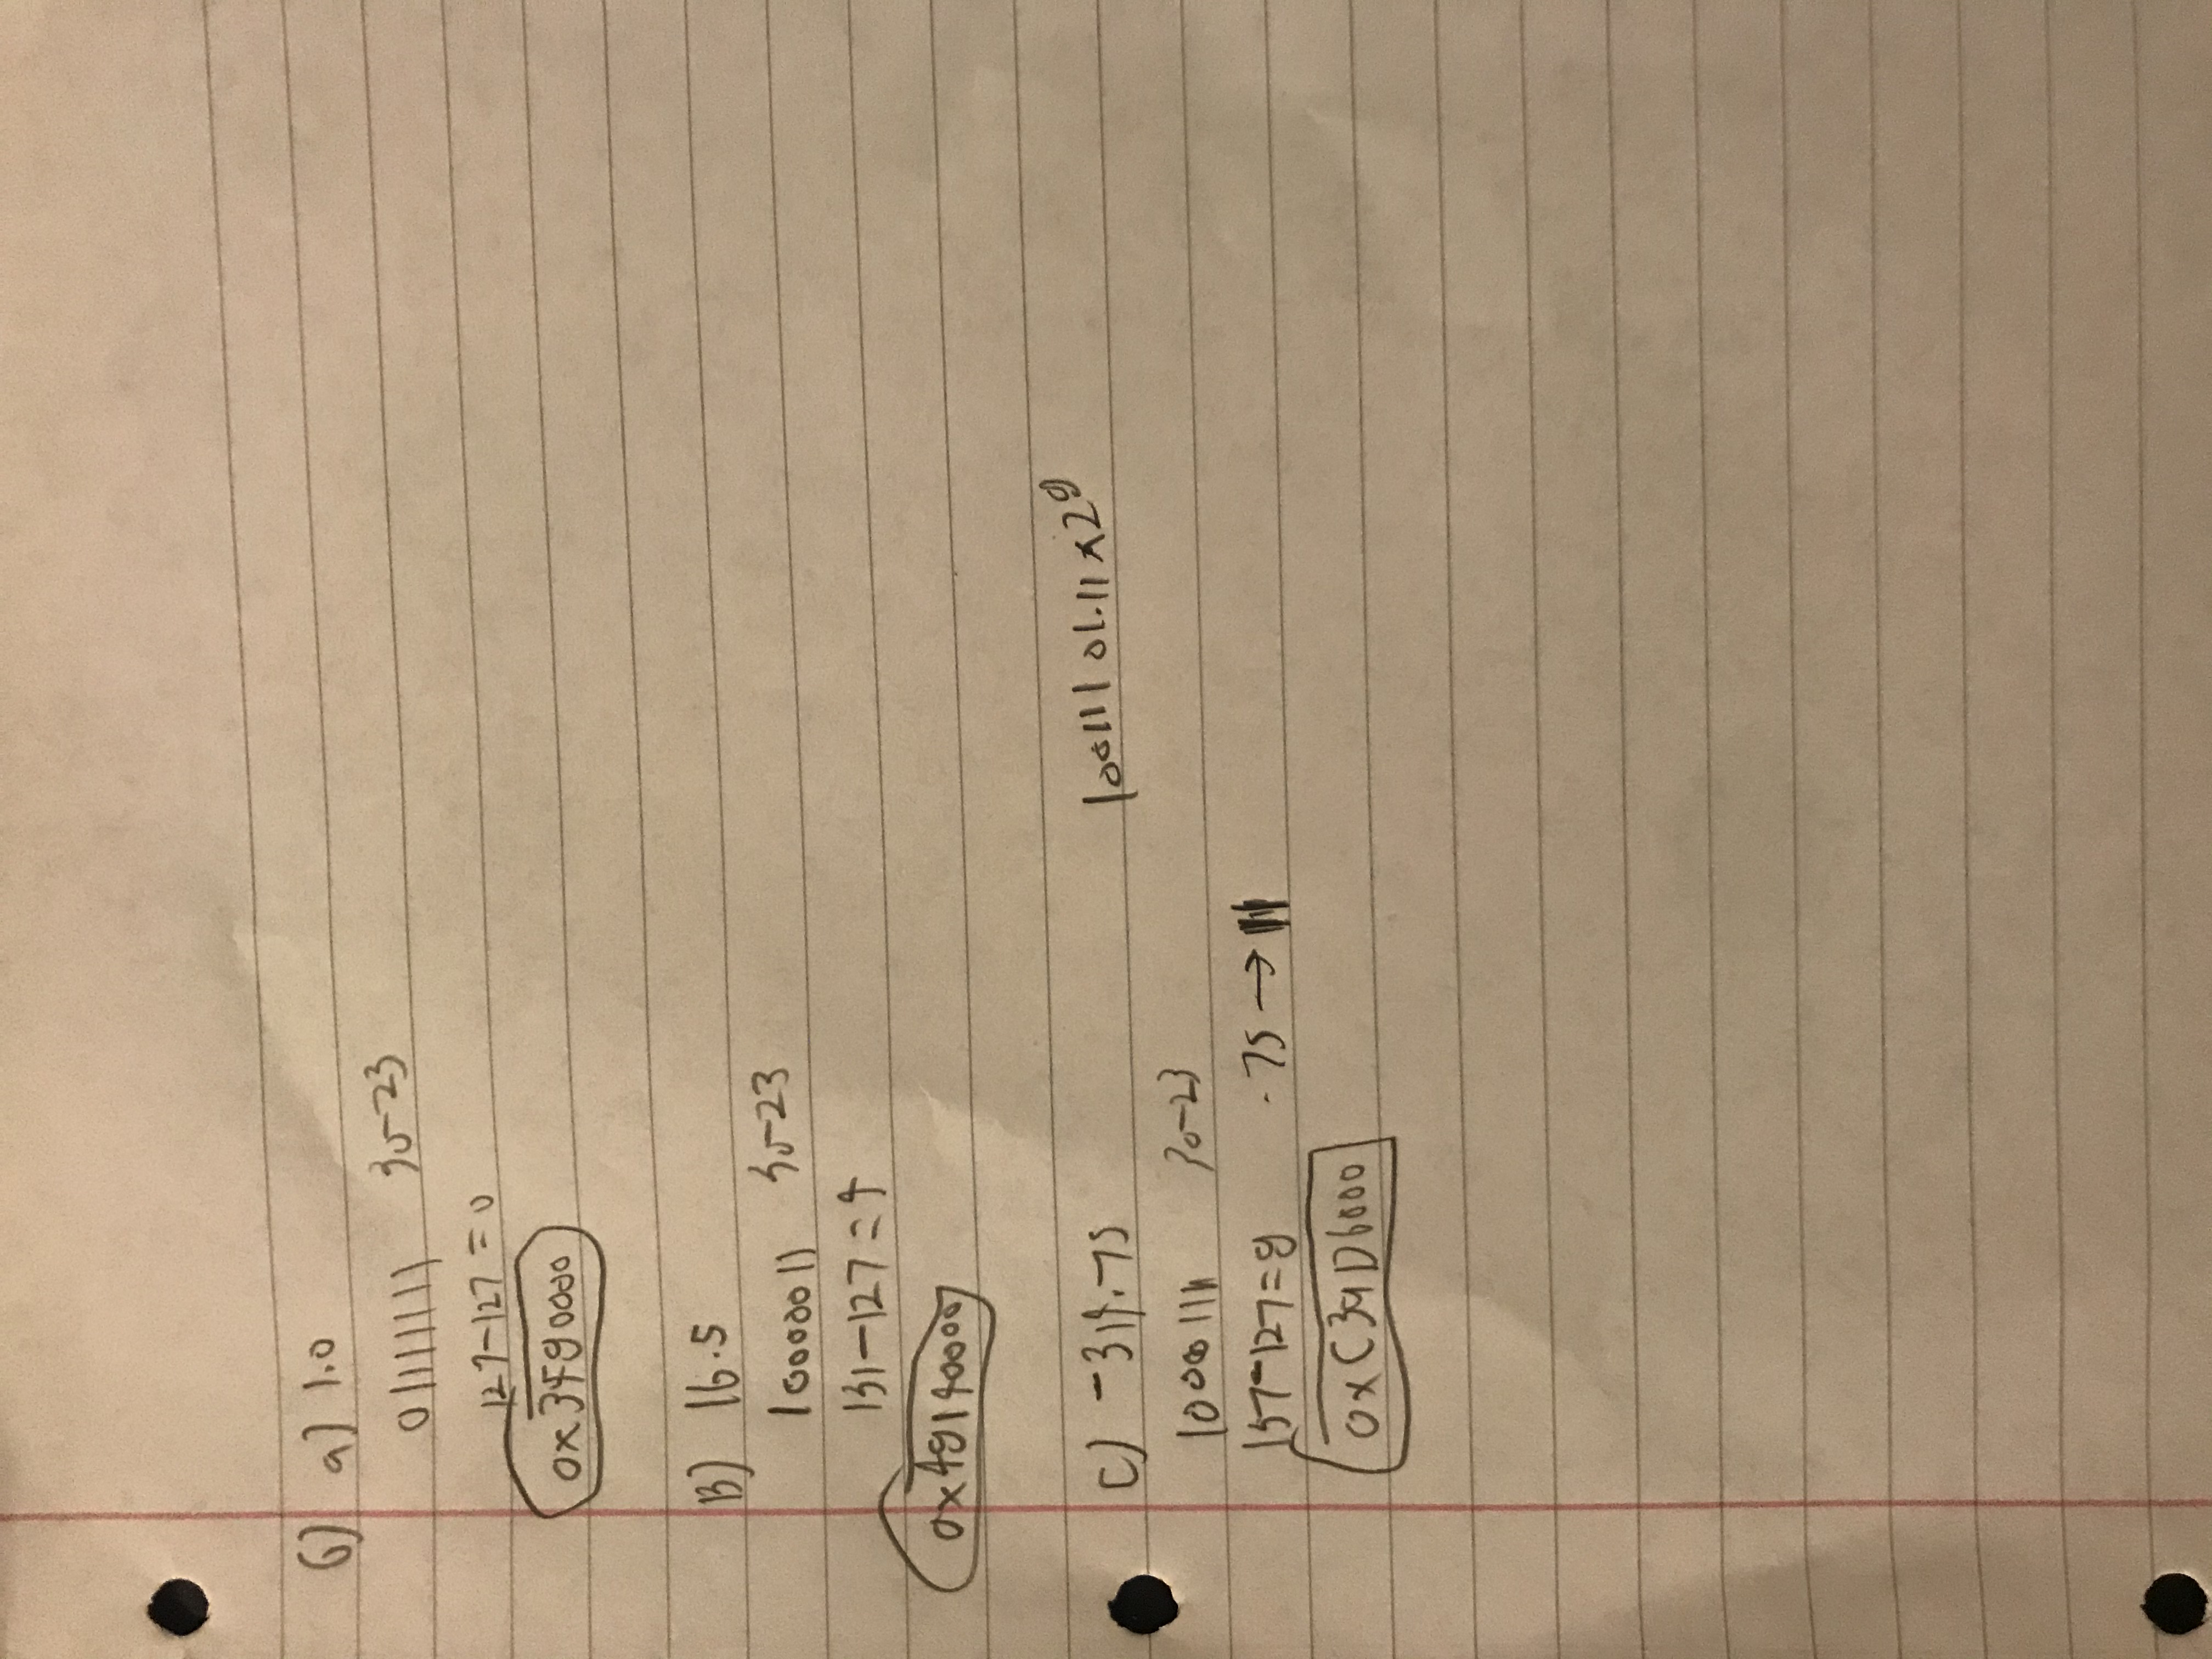 6) a) 1.0
01111111 30-23
127-127 = 0
0x3f800000
B) 16.5
10000011 30-23
131-127 = 4
0x41840000
C) -314.75 100111 01.11 x 2^8
10000111 30-23
137-127=8 .75 →
0xC39D6000